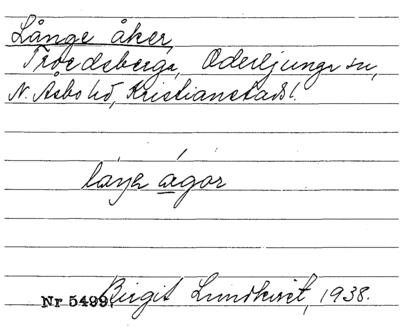 Långe åker,
Troedsberga, Oderljunga sn,
N. Åsbo hd, Kristianstads l.
ägor
Nr 5499. Birgit Lundkvist, 1938.